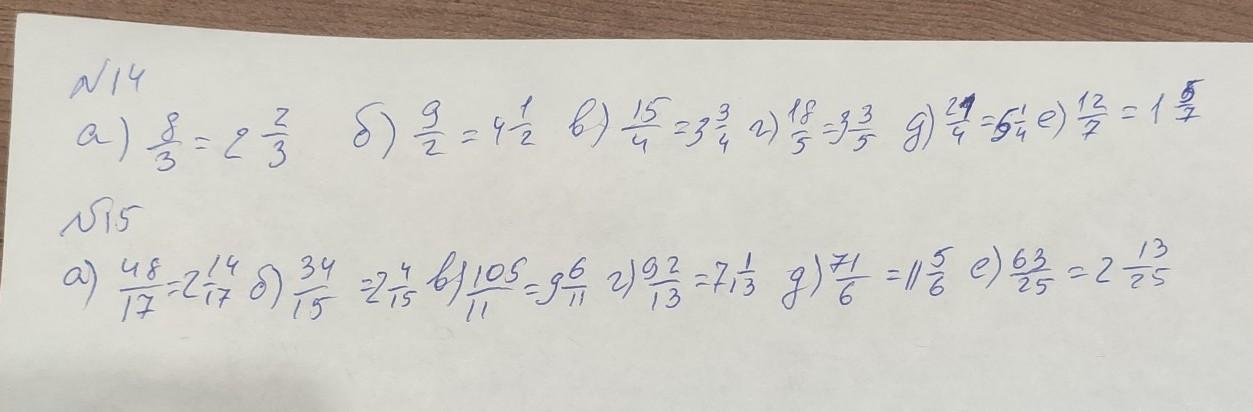 №14
а) 8/3 = 2 2/3 б) 9/2 = 4 1/2 в) 15/4 = 3 3/4 г) 18/5 = 3 3/5 д) 21/4 = 5 1/4 е) 12/7 = 1 5/7
№15
а) 48/17 = 2 14/17 б) 34/15 = 2 4/15 в) 105/11 = 9 6/11 г) 92/13 = 7 1/13 д) 71/6 = 11 5/6 е) 63/25 = 2 13/25